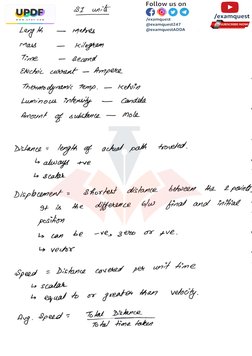 UPDF
WWW.UPDF.CN
Follow us on
/examquest
/examquest247
@examquestADDA
SUBSCRIBE NOW
SI units
Length — metres
Mass — Kilogram
Time — second
Electric current — Ampere
Thermodynamic temp. — Kelvin
Luminous intensity — candela
Amount of substance — Mole
Distance = length of actual path traveled.
↳ always +ve
↳ scalar
Displacement = Shortest distance between the 2 points,
It is the difference b/w final and initial
position
↳ can be -ve, zero or +ve.
↳ vector
Speed = Distance covered per unit time
↳ scalar
↳ equal to or greater than velocity.
Avg. Speed = Total Distance
Total time taken